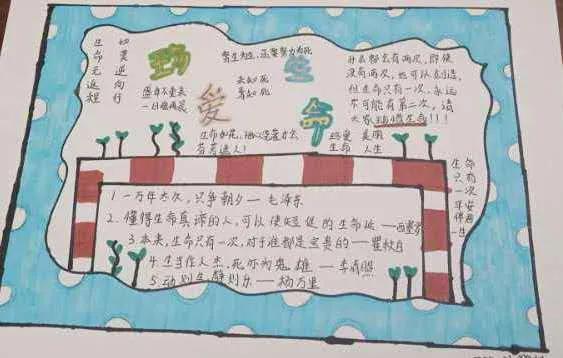 珍爱生命
生命无返程
切莫逆向行
盛年不重来
一日难再晨
未知死
什么都会有两次,即使
没有两次,也可以创造,
但生命只有一次,永远
不可能有第二次,请
大家珍惜生命!!!
生命如花,
芬芳迷人!
珍爱生命
美丽人生
生命只有一次
平安伴君一生
1 一万年太久,只争朝夕——毛泽东
2. 懂得生命真谛的人,可以使短促的生命延——西塞罗
3.本来,生命只有一次,对于谁都是宝贵的——瞿秋白
4.生当作人杰,死亦为鬼雄——李清照
5.动则生静则乐——杨万里